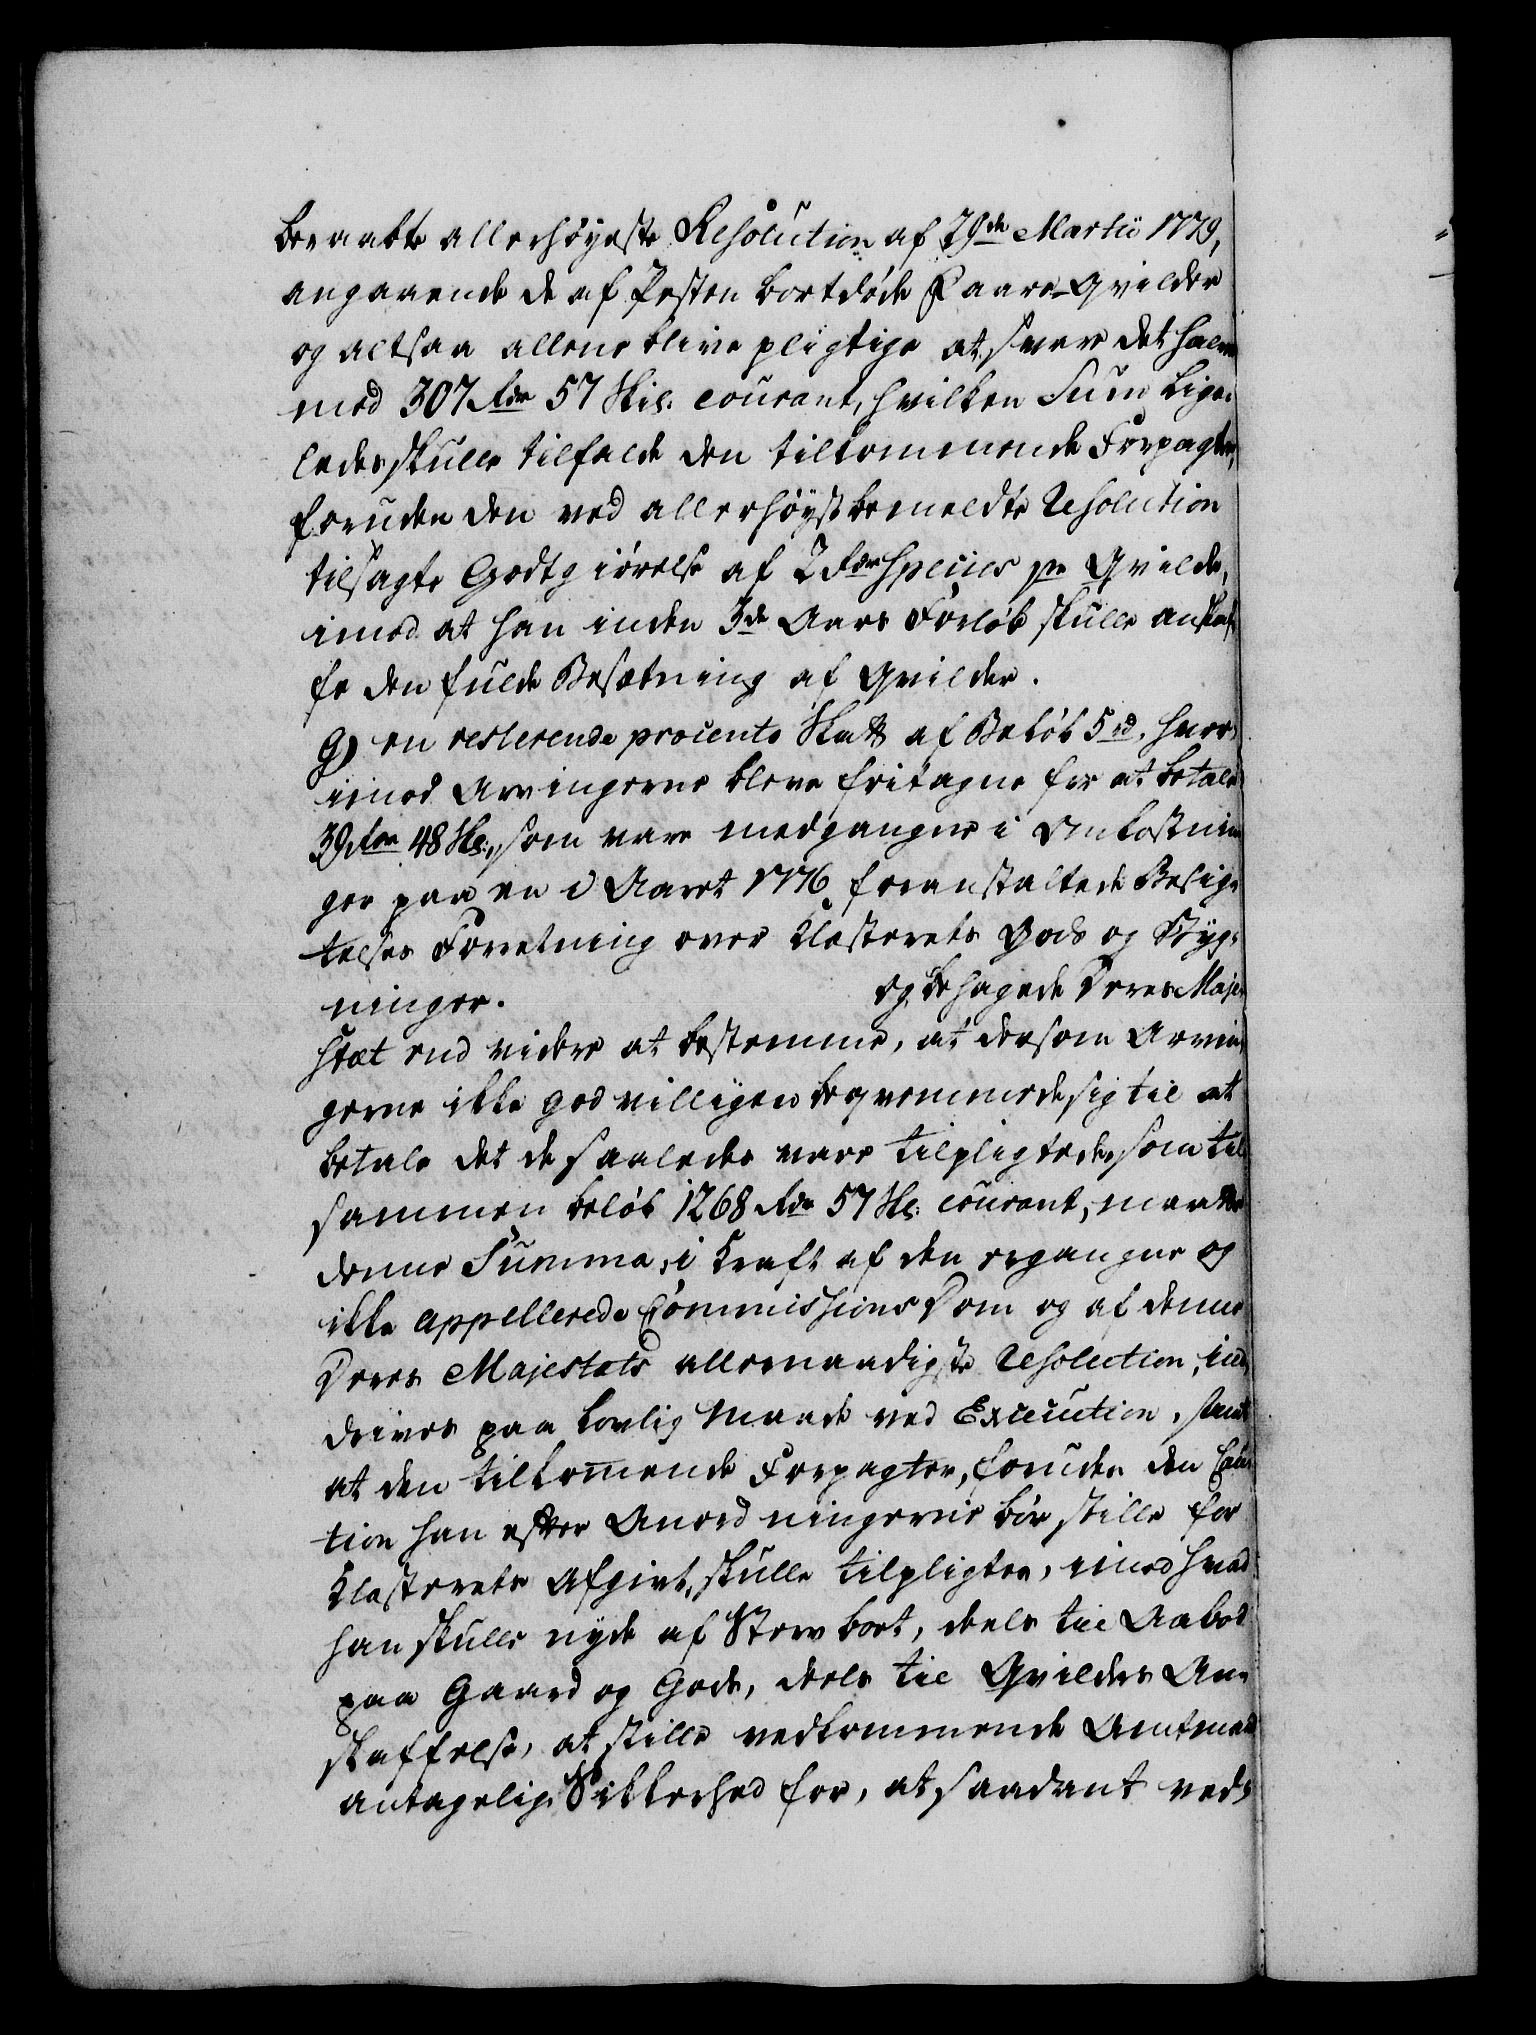 beraabte allerhøyeste Resolution af 29de Martii 1779,
angaaende de af Pesten bortdøde Faare-Qvilder
og altsaa allene blive pligtige at svare det halve
med 307 Rdr 57 Skil. courant, hvilken Sum lige-
ledes skulle tilfalde den tilkommende Forpagter,
foruden den ved allerhøystbemeldte Resolution
tilsagte Godtgiørelse af 2 Rdr Species pr Qvilde,
imod at han inden 3de Aars Forløb skulle anskaf-
fe den fulde Besætning af Qvilder.
9) en resterende procento Skatt af Beløb 5 rd, hvor-
imod Arvingerne bleve fritagne for at betale
39 Rdr 48 Sk:, som vare medgangne i Omkostnin-
ger paa en i Aaret 1776 foranstaltede Besig-
telses Forretning over Klosterets Gods og Byg-
ninger. og behagede Deres Maje-
stæt end videre at bestemme, at dersom Arvin-
gerne ikke godvilligen beqvemmede sig til at
betale det de saaledes vare tilpligtede, som til-
sammen beløb 1268 Rdr 57 Sk: courant, maatte
denne Summa, i Kraft af den ergangne og
ikke appellerede Commissions Dom og af denne
Deres Majestæts allernaadigste Resolution, ind-
drives paa lovlig Maade ved Execution, samt
at den tilkommende Forpagter, foruden den Cau-
tion han efter Anordningerne bør stille for
Klosterets Afgivt, skulle tilpligtes, imod hvad
han skulle nyde af Sterv boet, deels til Aabod
paa Gaard og Gods, deels til Qvilders An-
skaffelse, at stille vedkommende Amtmand
antagelig Sikkerhed for, at saadant ved-